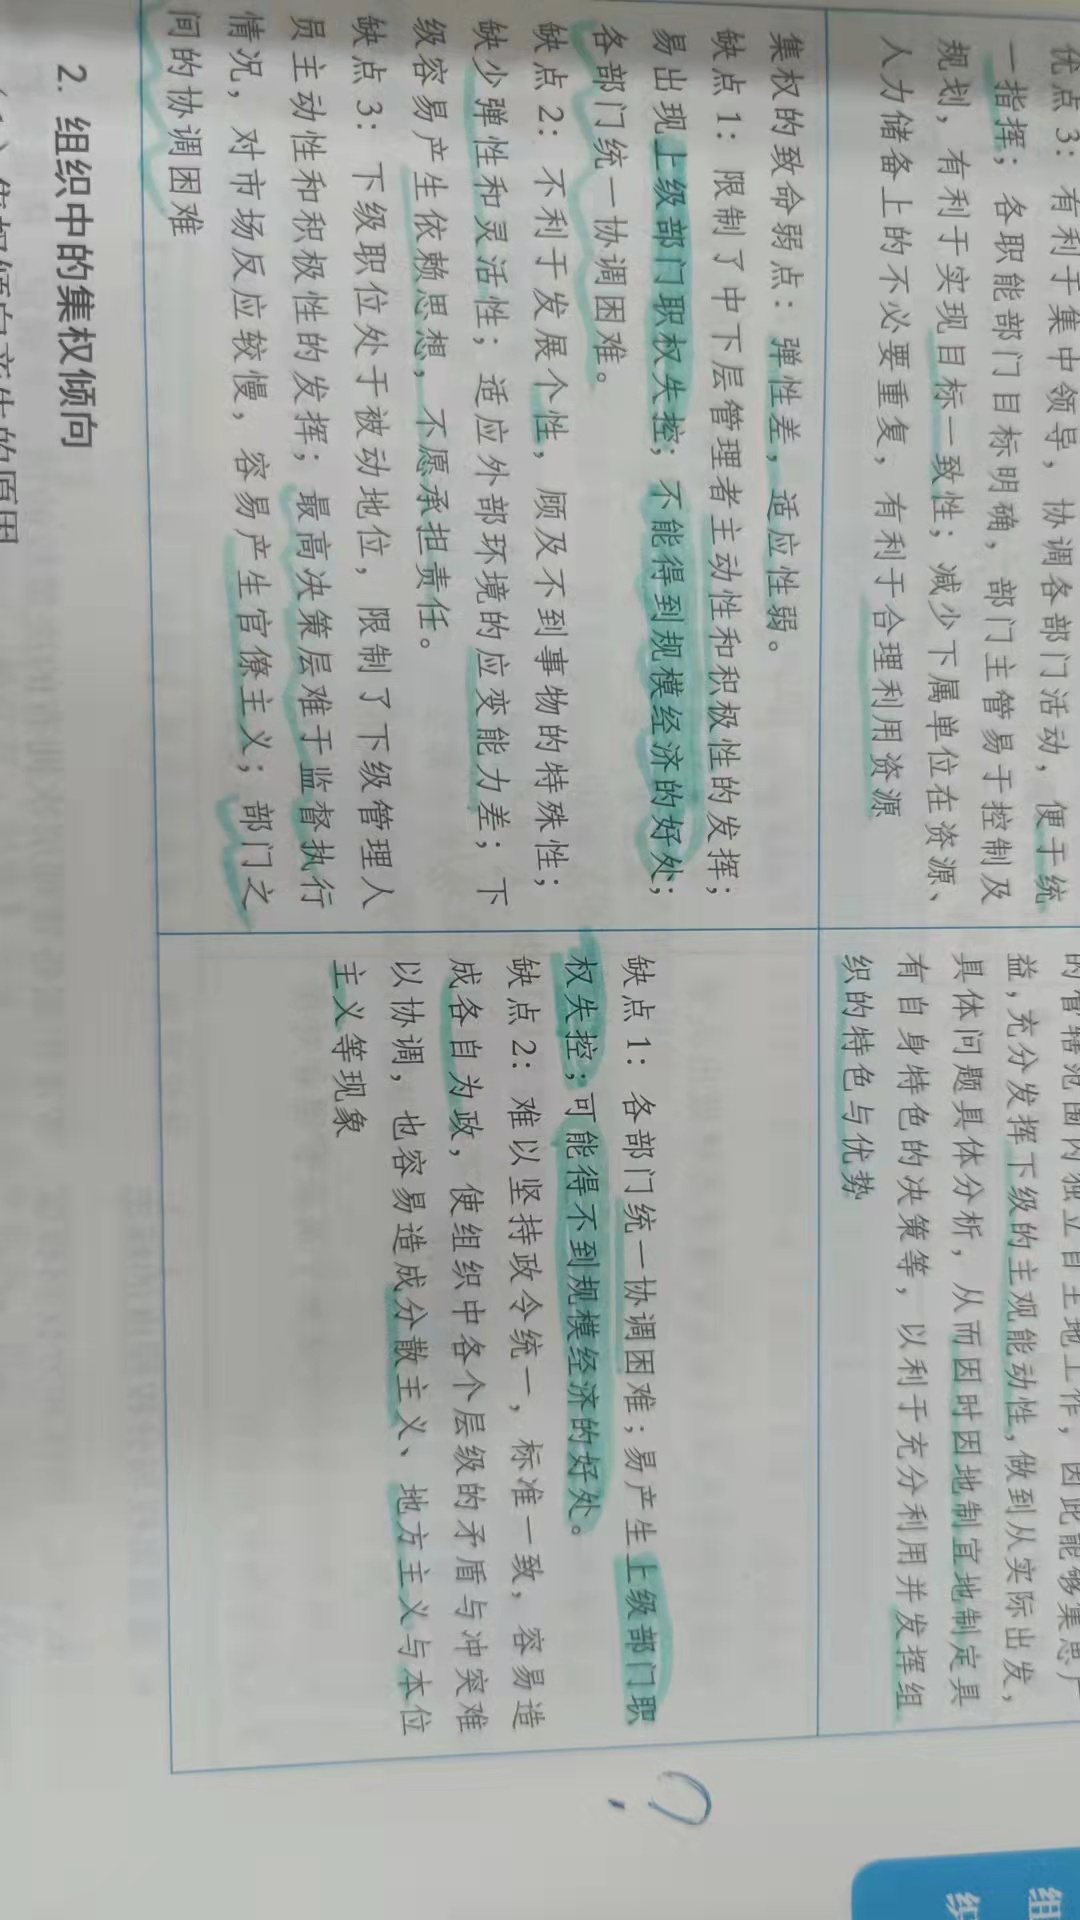 优点 3：有利于集中领导，协调各部门活动，便于统
一指挥；各职能部门目标明确，部门主管易于控制及
规划，有利于实现目标一致性；减少下属单位在资源、
人力储备上的不必要重复，有利于合理利用资源
的管辖范围内独立自主地工作，因此能够集思广
益，充分发挥下级的主观能动性，做到从实际出发，
具体问题具体分析，从而因时因地制宜地制定具
有自身特色的决策等，以利于充分利用并发挥组
织的特色与优势
集权的致命弱点：弹性差，适应性弱。
缺点 1：限制了中下层管理者主动性和积极性的发挥；
易出现上级部门职权失控；不能得到规模经济的好处；
各部门统一协调困难。
缺点 2：不利于发展个性，顾及不到事物的特殊性；
缺少弹性和灵活性；适应外部环境的应变能力差；下
级容易产生依赖思想，不愿承担责任。
缺点 3：下级职位处于被动地位，限制了下级管理人
员主动性和积极性的发挥；最高决策层难于监督执行
情况，对市场反应较慢，容易产生官僚主义；部门之
间的协调困难
缺点 1：各部门统一协调困难；易产生上级部门职
权失控；可能得不到规模经济的好处。
缺点 2：难以坚持政令统一，标准一致，容易造
成各自为政，使组织中各个层级的矛盾与冲突难
以协调，也容易造成分散主义、地方主义与本位
主义等现象
2. 组织中的集权倾向
组
织